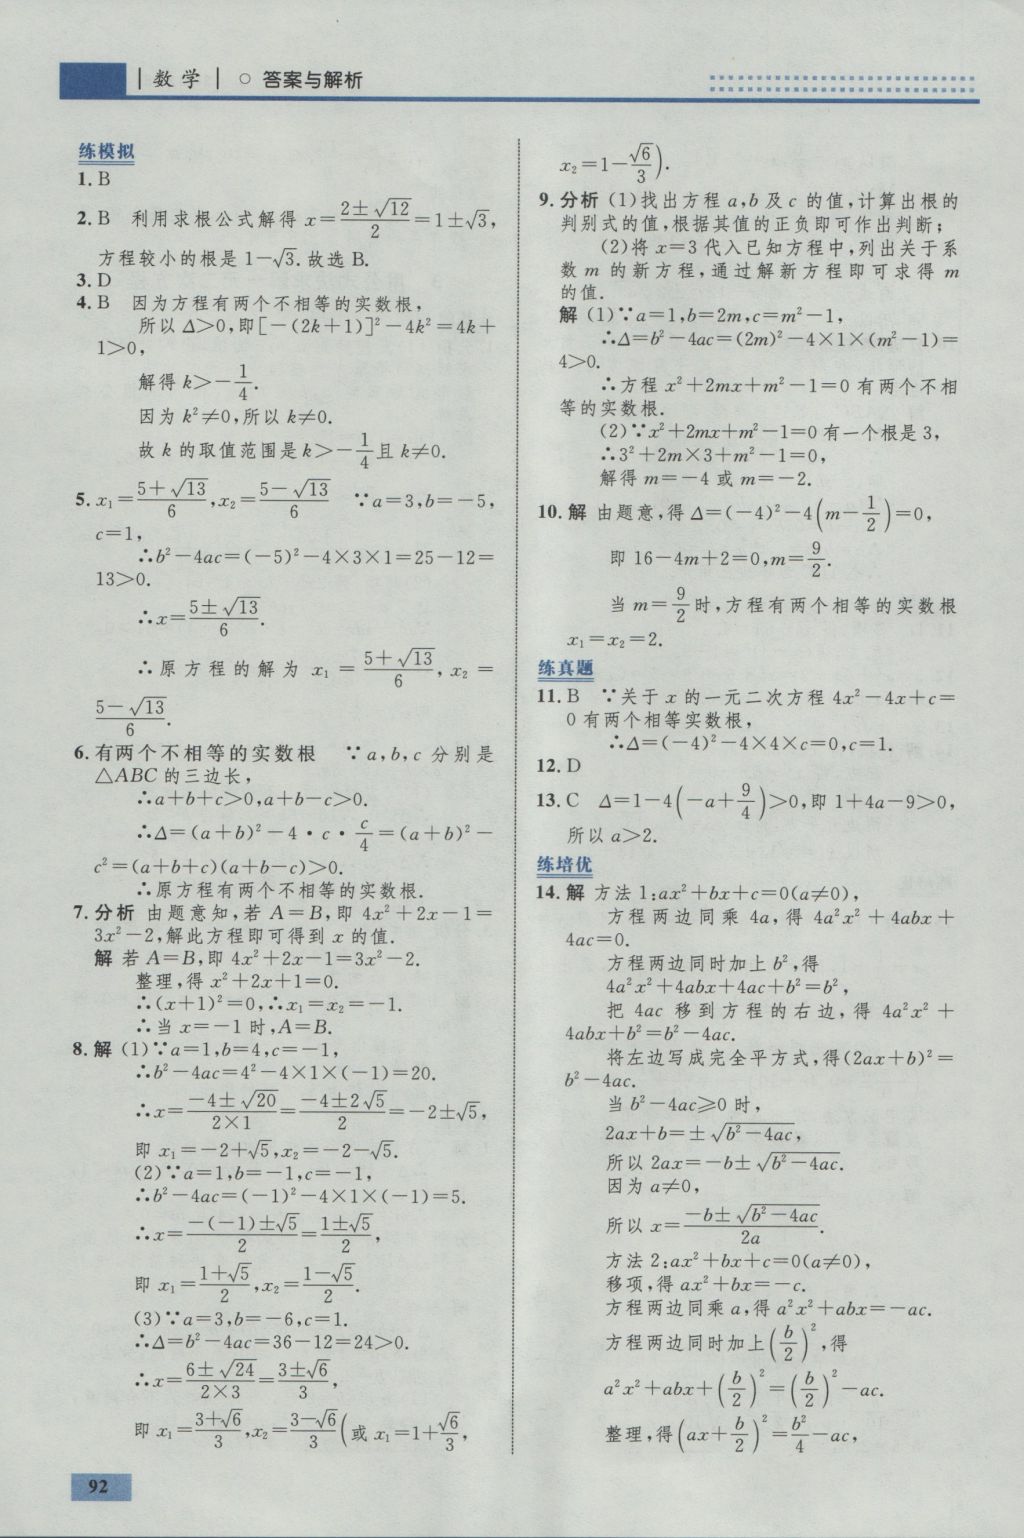 数学 ○ 答案与解析
练模拟
1. B
2. B 利用求根公式解得 x=(2±√12)/2=1±√3,
方程较小的根是 1-√3. 故选 B.
3. D
4. B 因为方程有两个不相等的实数根,
所以 Δ>0,即[-(2k+1)]²-4k²=4k+
1>0,
解得 k>-1/4.
因为 k²≠0,所以 k≠0.
故 k 的取值范围是 k>-1/4 且 k≠0.
5. x₁=(5+√13)/6,x₂=(5-√13)/6 ∵a=3,b=-5,
c=1,
∴b²-4ac=(-5)²-4×3×1=25-12=
13>0.
∴x=(5±√13)/6.
∴原方程的解为 x₁=(5+√13)/6,x₂=
(5-√13)/6.
6. 有两个不相等的实数根 ∵a,b,c 分别是
△ABC 的三边长,
∴a+b+c>0,a+b-c>0.
∴Δ=(a+b)²-4·c·c/4=(a+b)²-
c²=(a+b+c)(a+b-c)>0.
∴原方程有两个不相等的实数根.
7. 分析 由题意知,若 A=B,即 4x²+2x-1=
3x²-2,解此方程即可得到 x 的值.
解 若 A=B,即 4x²+2x-1=3x²-2.
整理,得 x²+2x+1=0.
∴(x+1)²=0,∴x₁=x₂=-1.
∴当 x=-1 时,A=B.
8. 解 (1)∵a=1,b=4,c=-1,
∴b²-4ac=4²-4×1×(-1)=20.
∴x=(-4±√20)/(2×1)=(-4±2√5)/2=-2±√5,
即 x₁=-2+√5,x₂=-2-√5.
(2)∵a=1,b=-1,c=-1,
∴b²-4ac=(-1)²-4×1×(-1)=5.
∴x=(-(-1)±√5)/2=(1±√5)/2,
即 x₁=(1+√5)/2,x₂=(1-√5)/2.
(3)∵a=3,b=-6,c=1.
∴Δ=b²-4ac=36-12=24>0.
∴x=(6±√24)/(2×3)=(3±√6)/3,
即 x₁=(3+√6)/3,x₂=(3-√6)/3(或 x₁=1+√6/3,
x₂=1-√6/3).
9. 分析 (1)找出方程 a,b 及 c 的值,计算出根的
判别式的值,根据其值的正负即可作出判断;
(2)将 x=3 代入已知方程中,列出关于系
数 m 的新方程,通过解新方程即可求得 m
的值.
解 (1)∵a=1,b=2m,c=m²-1,
∴Δ=b²-4ac=(2m)²-4×1×(m²-1)=
4>0.
∴方程 x²+2mx+m²-1=0 有两个不相
等的实数根.
(2)∵x²+2mx+m²-1=0 有一个根是 3,
∴3²+2m×3+m²-1=0,
解得 m=-4 或 m=-2.
10. 解 由题意,得 Δ=(-4)²-4(m-1/2)=0,
即 16-4m+2=0,m=9/2.
当 m=9/2 时,方程有两个相等的实数根
x₁=x₂=2.
练真题
11. B ∵关于 x 的一元二次方程 4x²-4x+c=
0 有两个相等实数根,
∴Δ=(-4)²-4×4×c=0,c=1.
12. D
13. C Δ=1-4(-a+9/4)>0,即 1+4a-9>0,
所以 a>2.
练培优
14. 解 方法 1:ax²+bx+c=0(a≠0),
方程两边同乘 4a,得 4a²x²+4abx+
4ac=0.
方程两边同时加上 b²,得
4a²x²+4abx+4ac+b²=b²,
把 4ac 移到方程的右边,得 4a²x²+
4abx+b²=b²-4ac.
将左边写成完全平方式,得(2ax+b)²=
b²-4ac.
当 b²-4ac≥0 时,
2ax+b=±√(b²-4ac),
所以 2ax=-b±√(b²-4ac).
因为 a≠0,
所以 x=(-b±√(b²-4ac))/2a.
方法 2:ax²+bx+c=0(a≠0),
移项,得 ax²+bx=-c.
方程两边同乘 a,得 a²x²+abx=-ac.
方程两边同时加上(b/2)²,得
a²x²+abx+(b/2)²=(b/2)²-ac.
整理,得(ax+b/2)²=b²/4-ac,
92